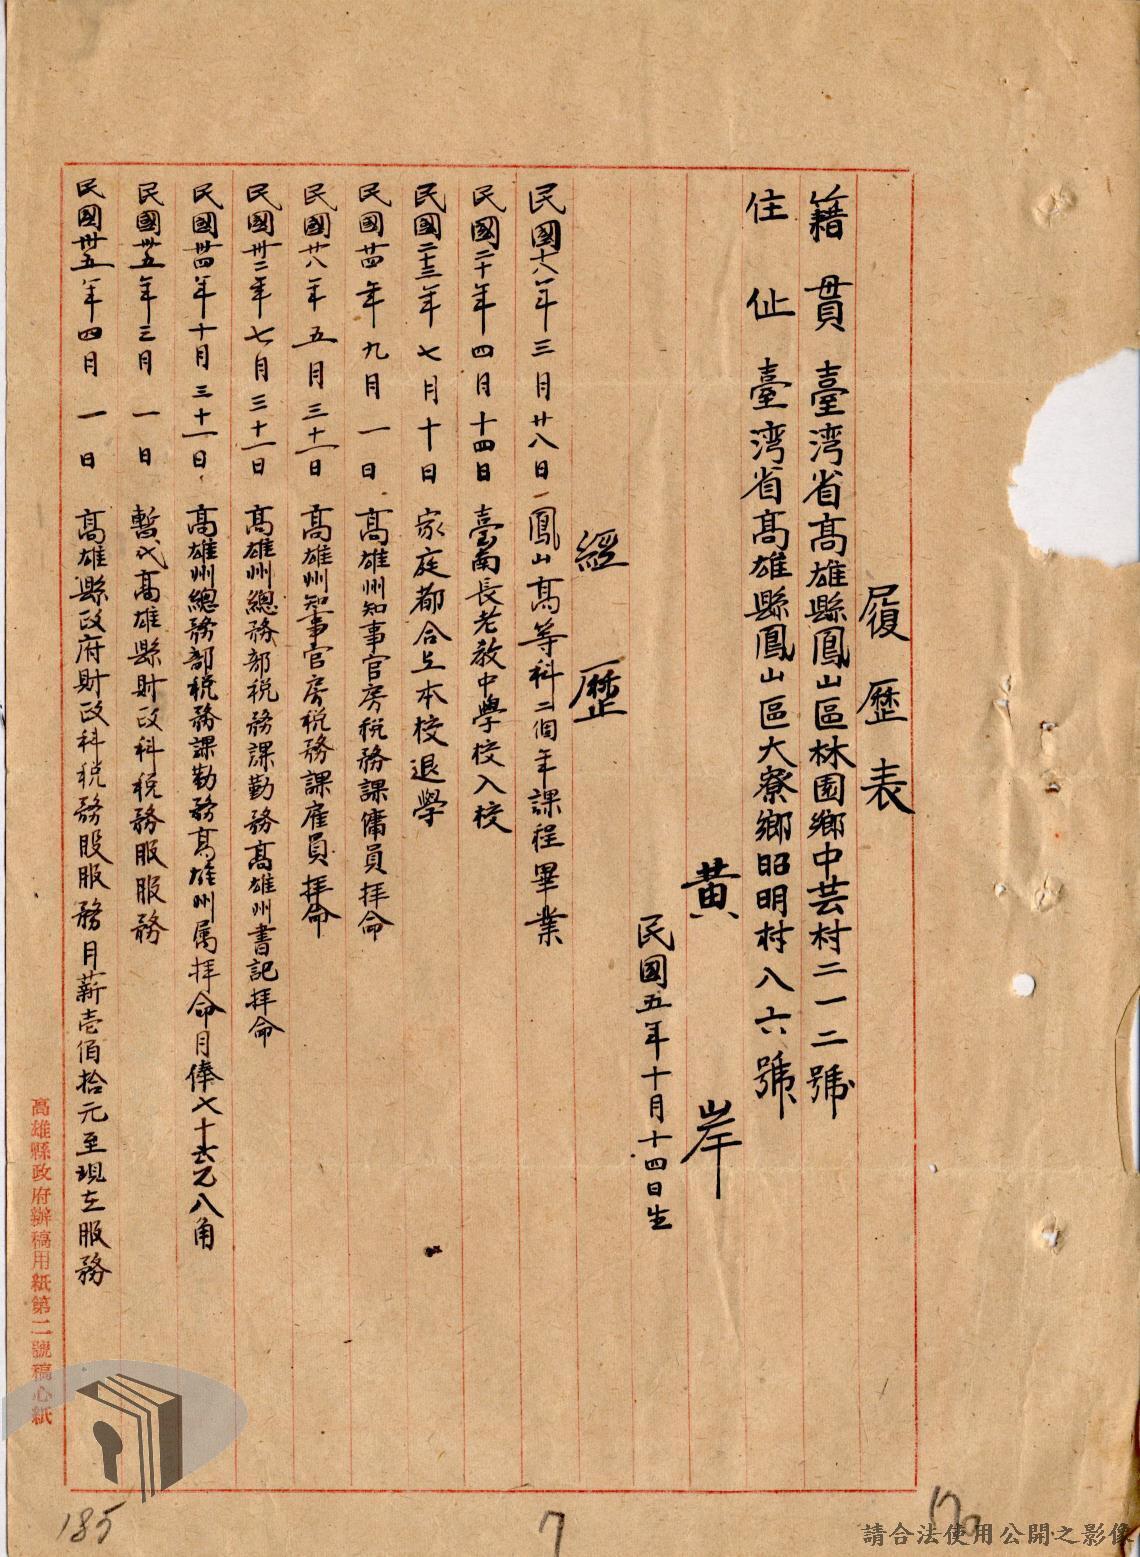 履歷表
籍貫 臺湾省高雄縣鳳山區林園鄉中芸村二一二號
住址 臺湾省高雄縣鳳山區大寮鄉昭明村八六號
黄岸
民國五年十月十四日生
經歷
民國十八年三月廿八日 鳳山高等科二個年課程畢業
民國二十年四月十四日 臺南長老教中學校入校
民國二十三年七月十日 家庭都合上本校退學
民國廿四年九月一日 高雄州知事官房税務課傭員拝命
民國廿八年五月三十一日 高雄州知事官房税務課雇員拝命
民國卅二年七月三十一日 高雄州總務部税務課勤務高雄州書記拝命
民國卅四年十月三十一日 高雄州總務部税務課勤務高雄州属拝命月俸七十六元八角
民國卅五年三月一日 暫代高雄縣財政科税務服服務
民國卅五年四月一日 高雄縣政府財政科税務股服務月薪壱佰拾元至現在服務
高雄縣政府辦稿用紙第二號稿心紙
185
7
請合法使用公開之影像